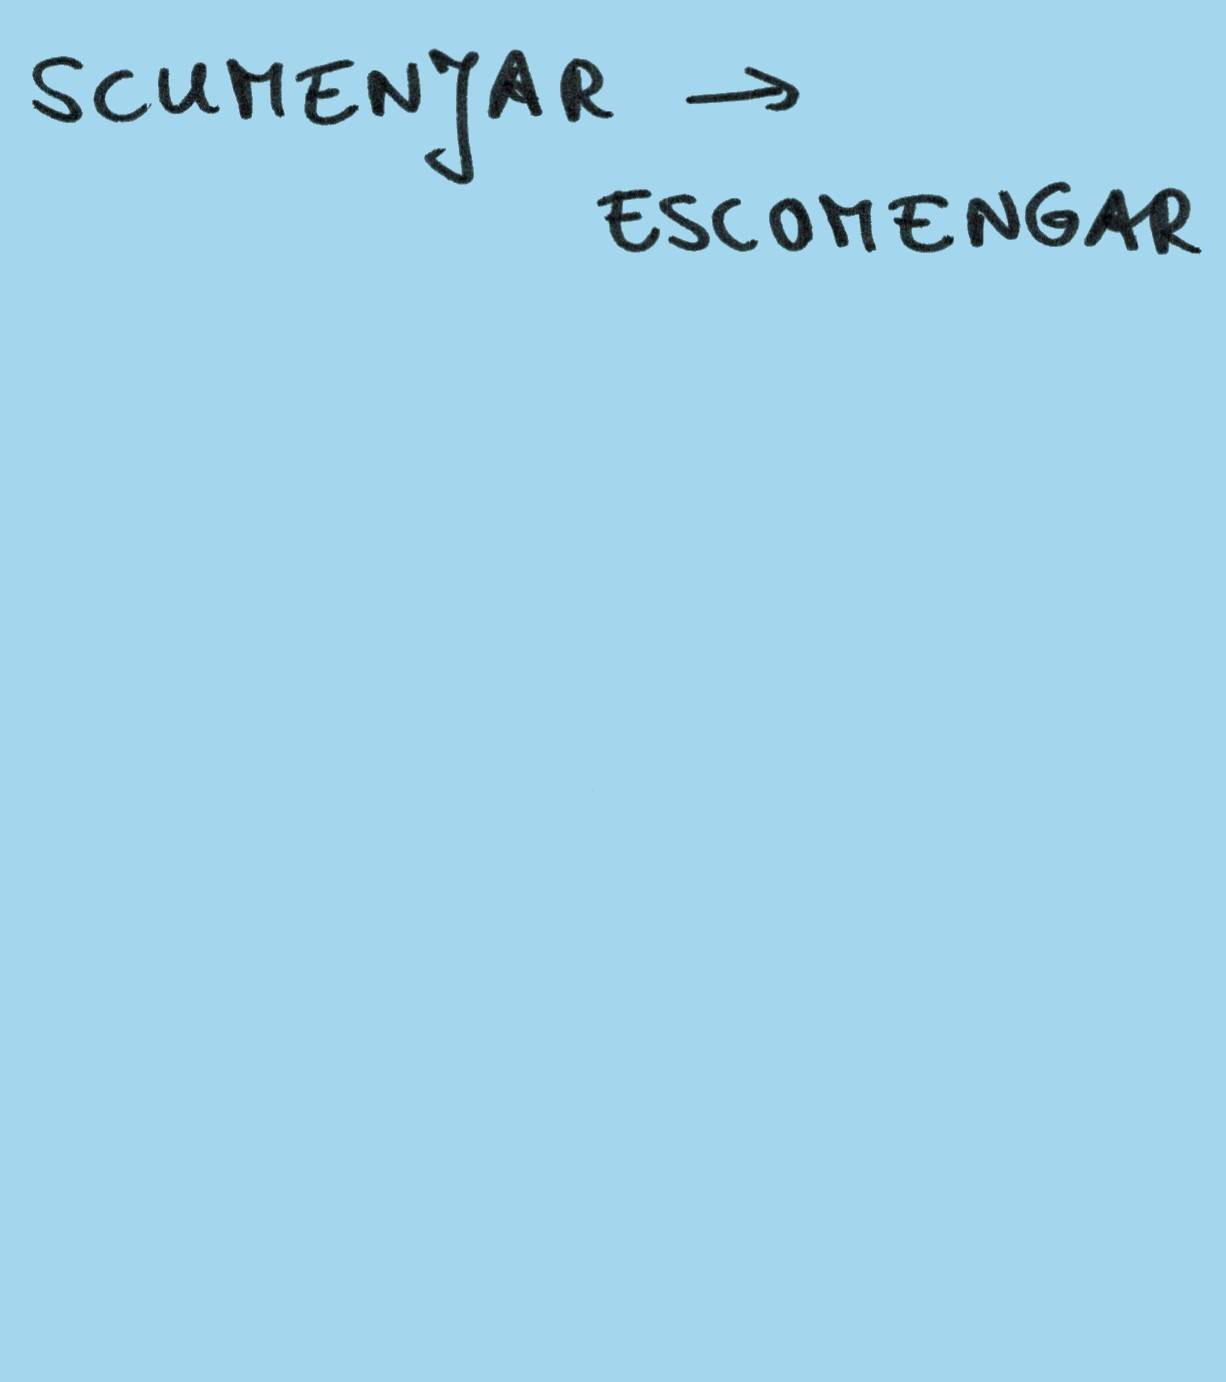 SCUMENJAR →
ESCOMENGAR